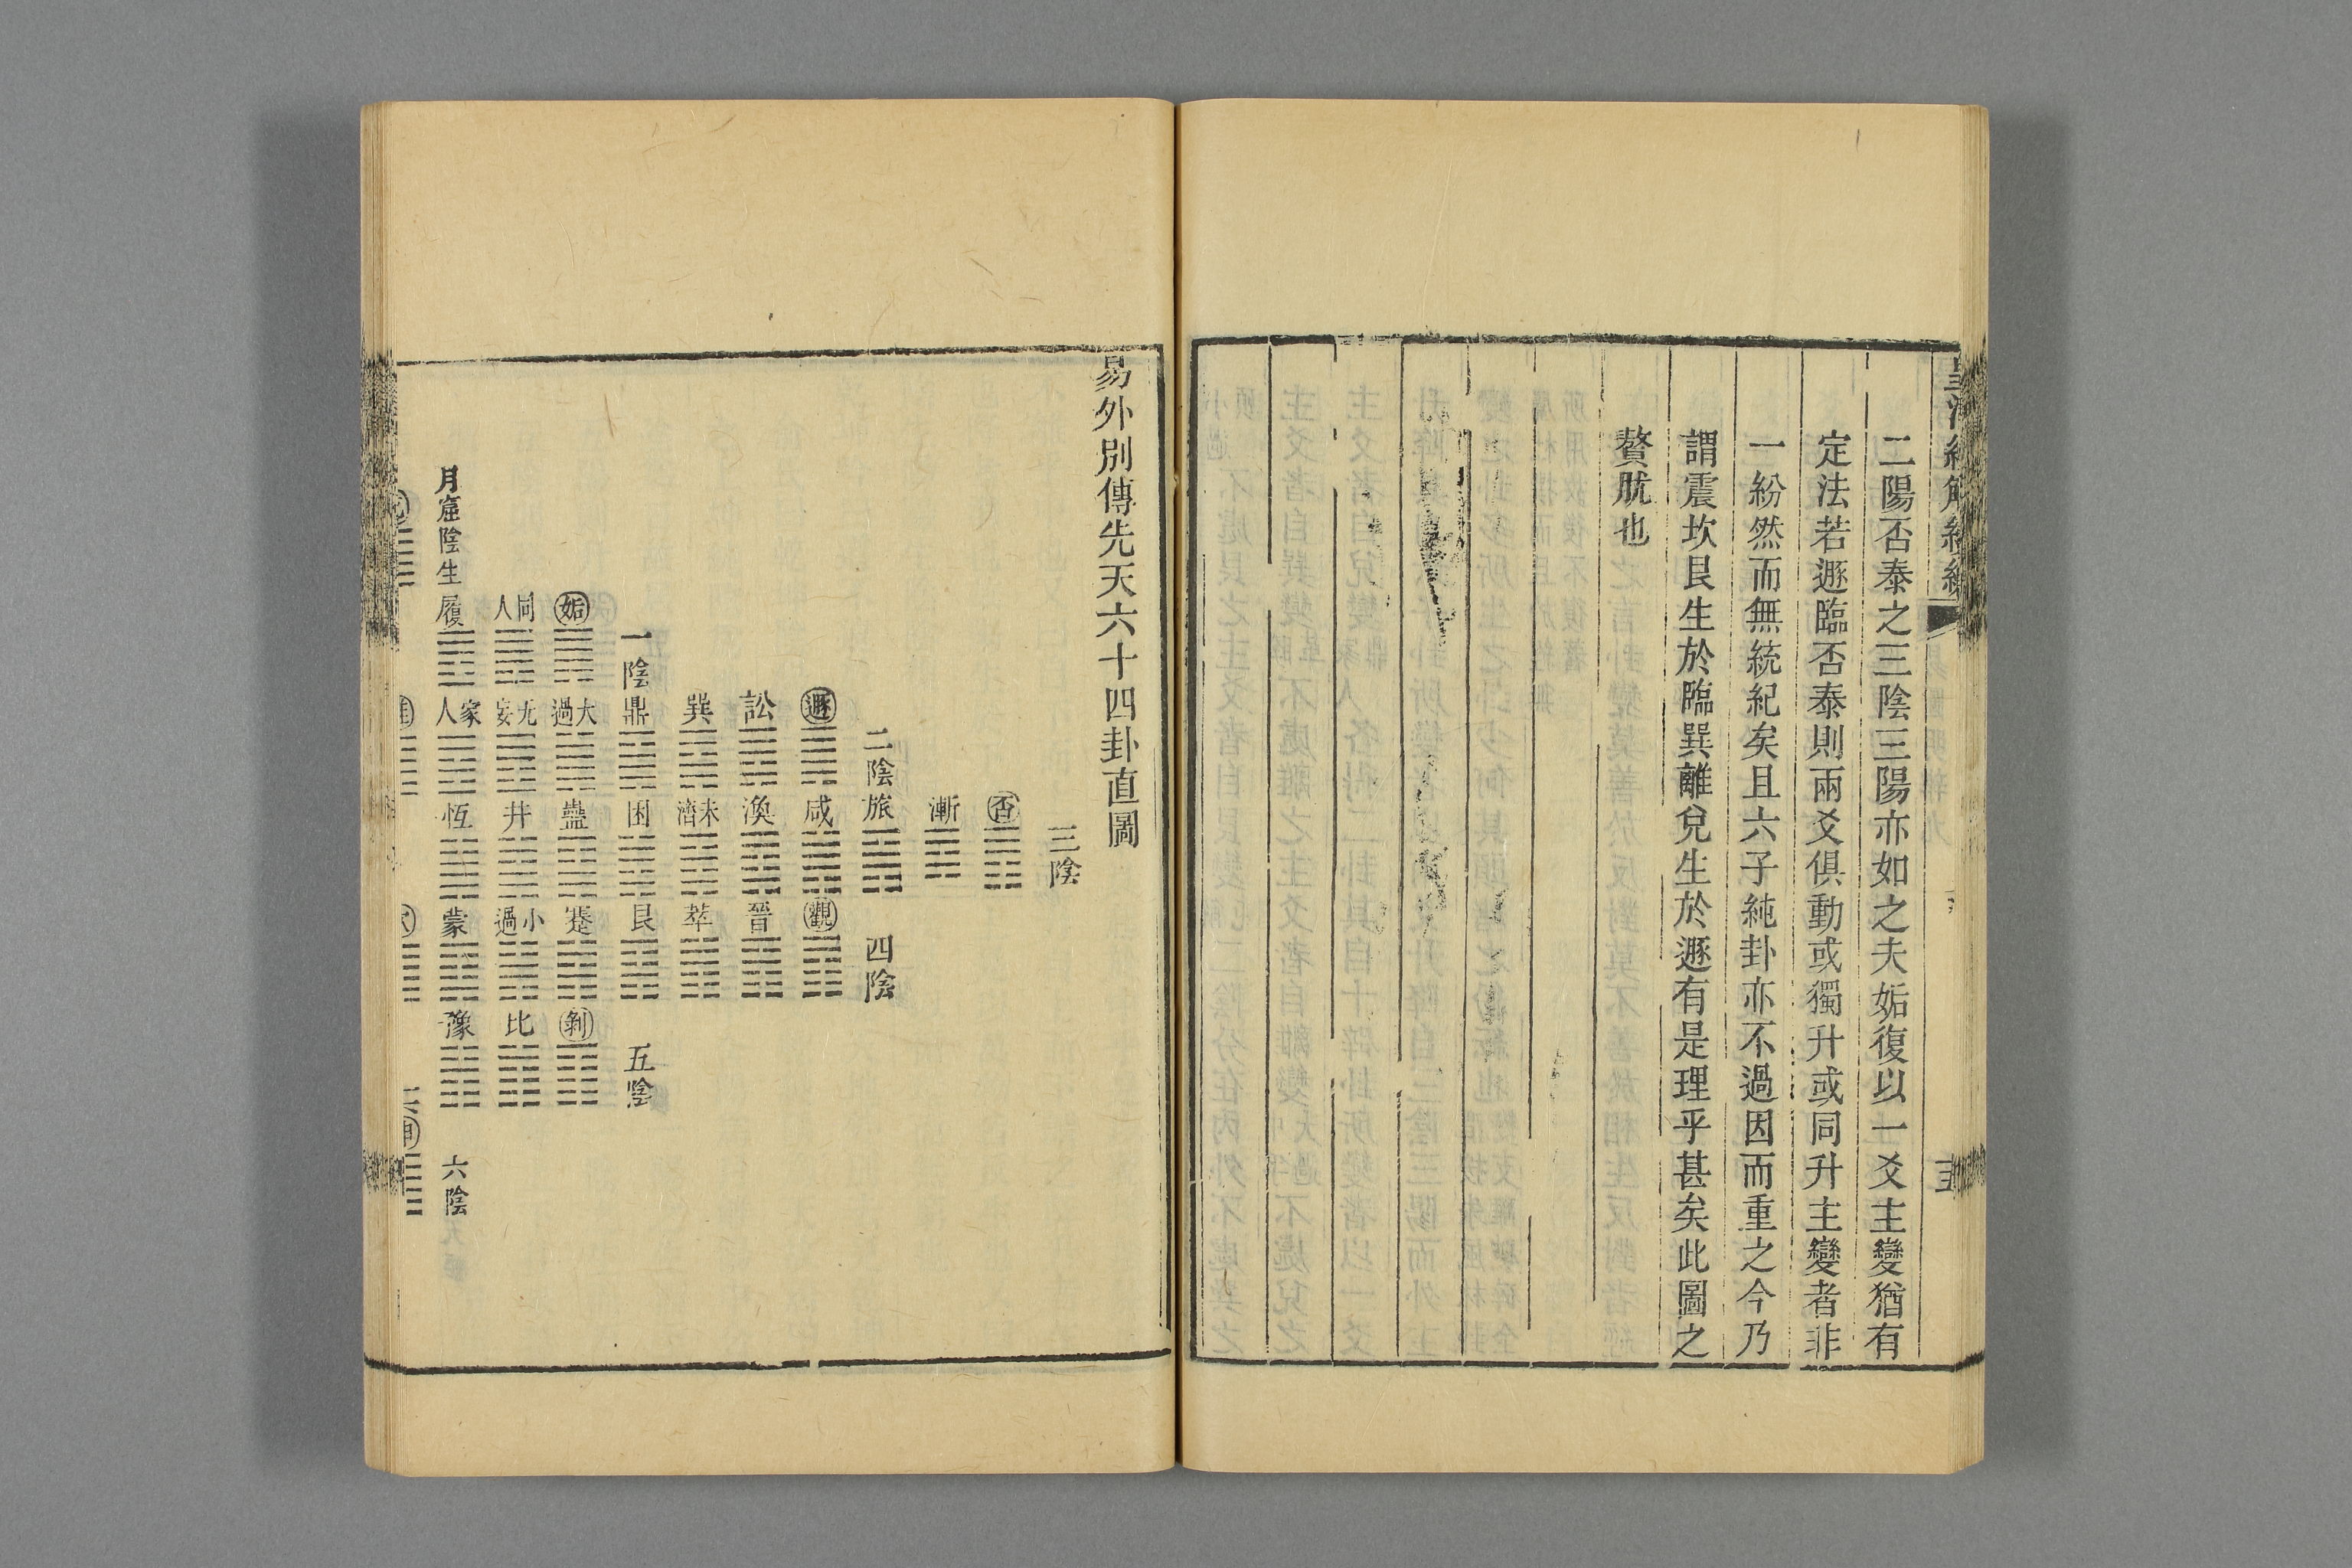 二陽否泰之三陰三陽亦如之夫姤復以一爻主變猶有
定法若遯臨否泰則兩爻俱動或獨升或同升主變者非
一紛然而無統紀矣且六子純卦亦不過因而重之今乃
謂震坎艮生於臨巽離兌生於遯有是理乎甚矣此圖之
贅肬也
易外別傳先天六十四卦直圖
三陰
否
漸
二陰 旅 四陰
遯 咸 觀
訟 渙 晉
巽 未濟 萃
一陰 鼎 困 艮 五陰
姤 大過 蠱 蹇 剝
同人 无妄 井 小過 比
月窟陰生 履 家人 恆 蒙 豫 六陰